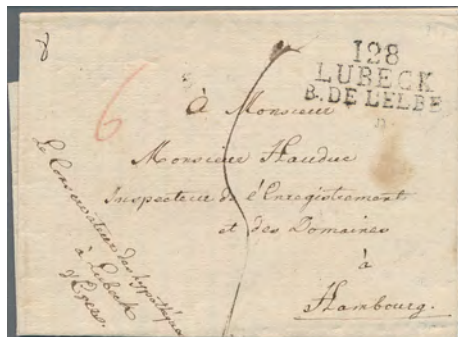 8
128
LUBECK
B. DE L'ELBE
6
À Monsieur
Monsieur Hauduc
Inspecteur de l'Enregistrement
et des Domaines
à
Hambourg.
Le Conservateur des hypothèques
à Lubeck